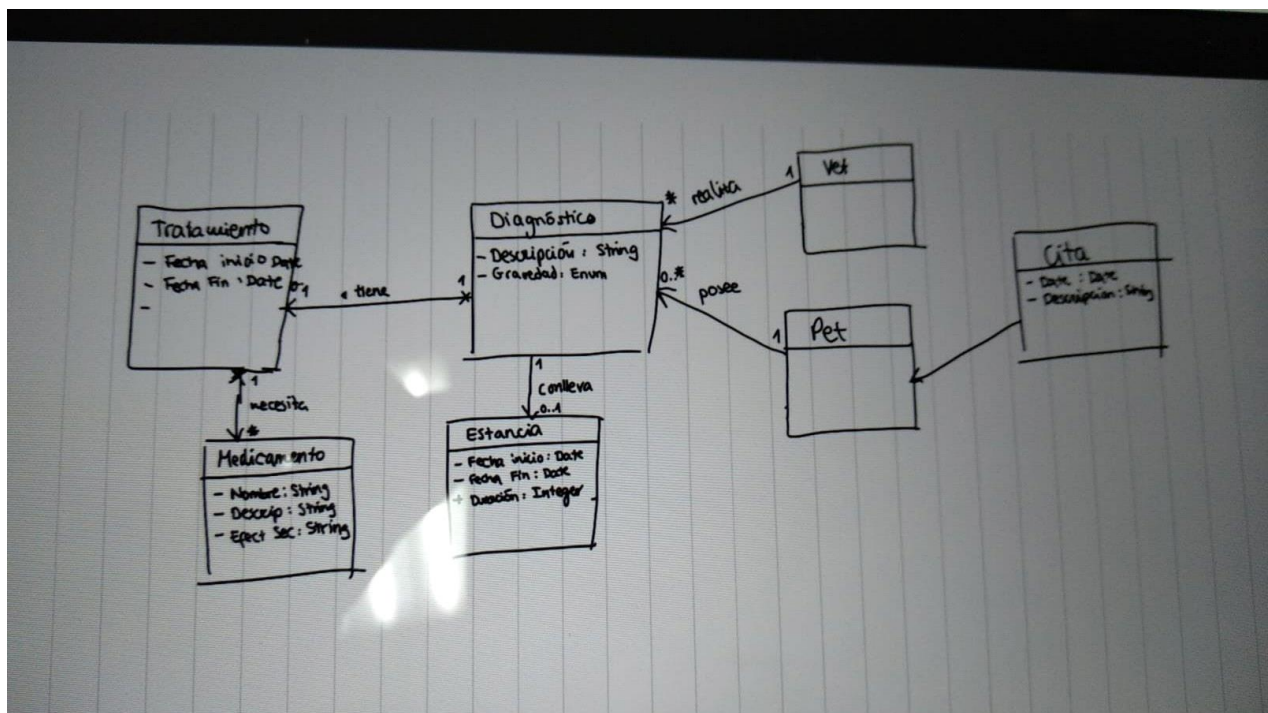 Tratamiento
- Fecha inicio Date
- Fecha Fin : Date
-
0..1
tiene
1
Diagnóstico
- Descripción : String
- Gravedad : Enum
* realiza 1
Vet
0..*
posee
1
Pet
Cita
- Date : Date
- Descripción : String
1
necesita
*
Medicamento
- Nombre : String
- Descrip : String
- Efect Sec : String
1
Conlleva
0..1
Estancia
- Fecha inicio : Date
- Fecha Fin : Date
+ Duración : Integer